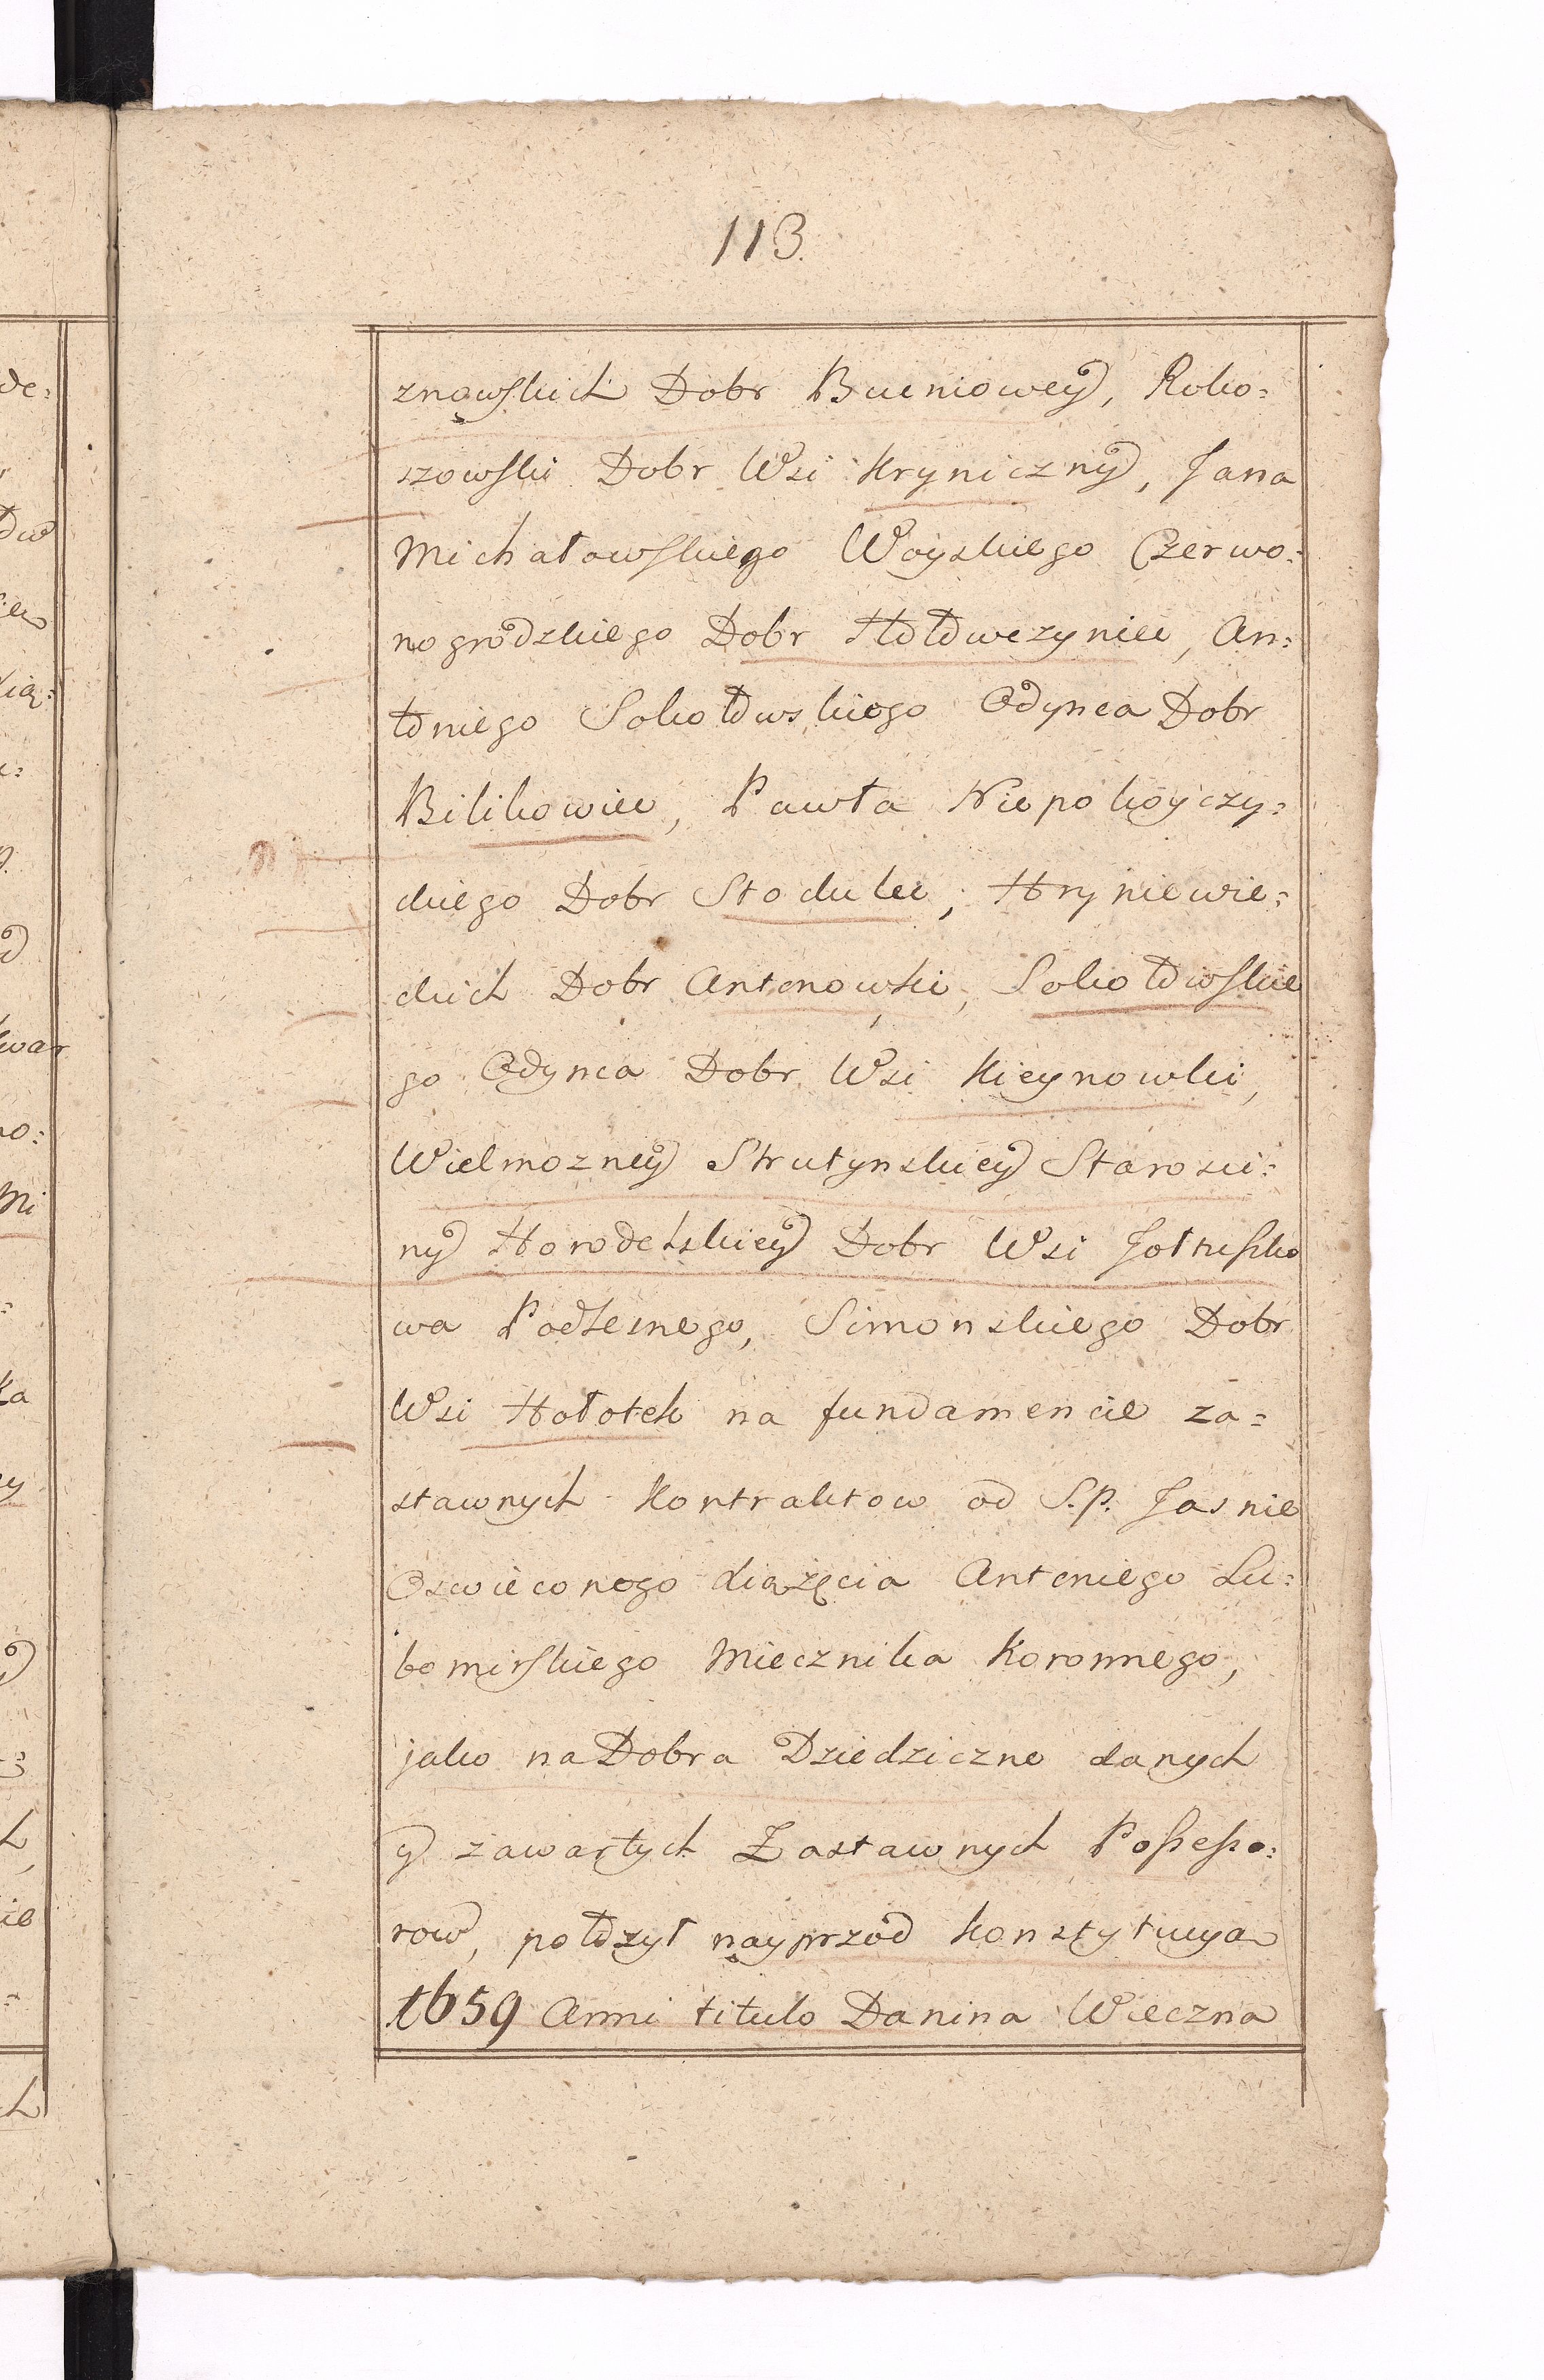 113.
znowskich Dobr Bucniowey, Roko=
szowski Dobr Wsi Kryniczny, Jana
Michałowskiego Woyskiego Czerwo=
nogrodzkiego Dobr Hołowczyniec, An=
toniego Sokołowskiego Odynca Dobr
Bilikowiec, Pawła Niepokoyczy=
ckiego Dobr Stodulec, Hryniewie=
ckich Dobr Antonowki, Sokołowskie
go Odynca Dobr Wsi Kieynowki,
Wielmozney Strutynskiey Starosci=
ny Horodelskiey Dobr Wsi Jołtuszko
wa Podlesnego, Simonskiego Dobr
Wsi Hołotek na fundamencie za=
stawnych Kontraktow od S.p. Jasnie
Oswieconego Xiążęcia Antoniego Lu=
bomirskiego Miecznika Koronnego,
jako na Dobra Dziedziczne danych
y zawartych Zastawnych Possesso=
row, połozył nayprzod Konstytucya
1659 Anni titulo Danina Wieczna